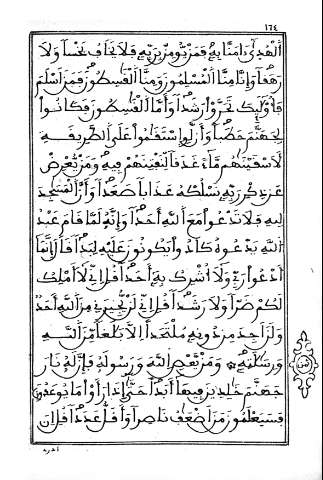 ١٦٤
الهدى ءامنا به فمن يومن بربه فلا يخاف بخسا ولا
رهقا وإنا منا المسلمون ومنا القسطون فمن اسلم
فأولئك تحروا رشدا وأما القسطون فكانوا
لجهنم حطبا وأن لو استقموا على الطريقة
لأسقينهم ماء غدقا لنفتنهم فيه ومن يعرض
عن ذكر ربه نسلكه عذابا صعدا وأن المسجد
لله فلا تدعوا مع الله أحدا وإنه لما قام عبد
الله يدعوه كادوا يكونون عليه لبدا قال إنما
أدعوا ربي ولا أشرك به أحدا قل اني لا أملك
لكم ضرا ولا رشدا قل اني لن يجيرني من الله أحد
ولن أجد من دونه ملتحدا إلا بلغا من الله
ورسلته ومن يعص الله ورسوله فإن له نار
جهنم خلدين فيها أبدا حتى إذا رأوا ما يوعدون
فسيعلمون من أضعف ناصرا وأقل عددا قل ان
ثمن
أدري